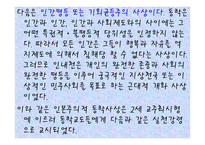 다음은 인간평등 또는 기회균등주의 사상이다. 동학은
인간과 인간, 인간과 사회제도와의 사이에는 그
어떤 특권적·폭명등적 당위성을 인정하지 않는
다. 따라서 모든 인간은 그들이 행복과 자유를 억
지제도에 의해서 침해당 할 수 없다는 사상이다.
그러므로 인내천은 개인의 완전한 존중과 사회의
완전한 평등을 이루어 궁극적인 지상천국 또는 이
상적인 민주사회를 목표로 하는 근대적 개화 사상
이었다.
이와 같은 인본주의적 동학사상은 2세 교주최시형
에 이르러 동학교도들에게 다음과 같은 실천강령
으로 교시되었다.